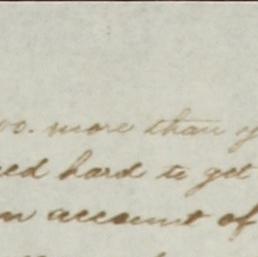 00. more than
ed hard to get
n account of